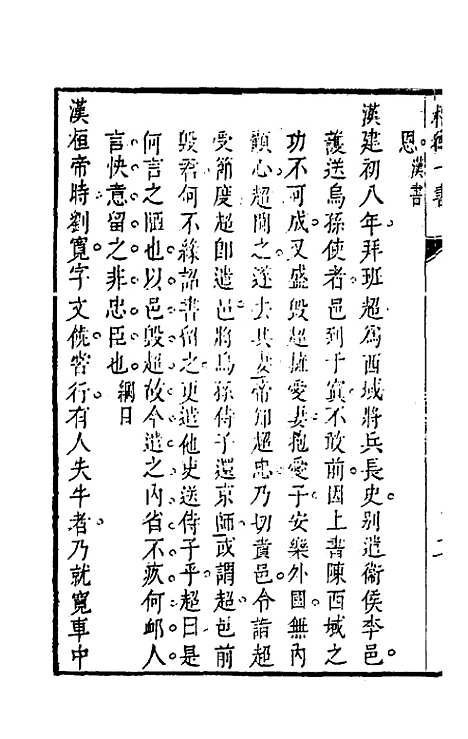 恩。漢書
漢建初八年拜班超爲西域將兵長史。别遣衞侯李邑。
護送烏孫使者邑到于窴。不敢前因上書陳西域之
功不可成。又盛毁超擁愛妻抱愛子安樂外國。無内
顧心超聞之。遂去其妻帝知超忠乃切責邑。令詣超
受節度超卽遣邑將烏孫侍子還京師。或謂超。邑前
毁君何不緣詔書留之。更遣他吏送侍子乎超曰是
何言之陋也以邑毁超。故今遣之内省不疚何卹人
言快意留之非忠臣也。綱目
漢桓帝時劉寛。字文饒。嘗行有人失牛者。乃就寛車中